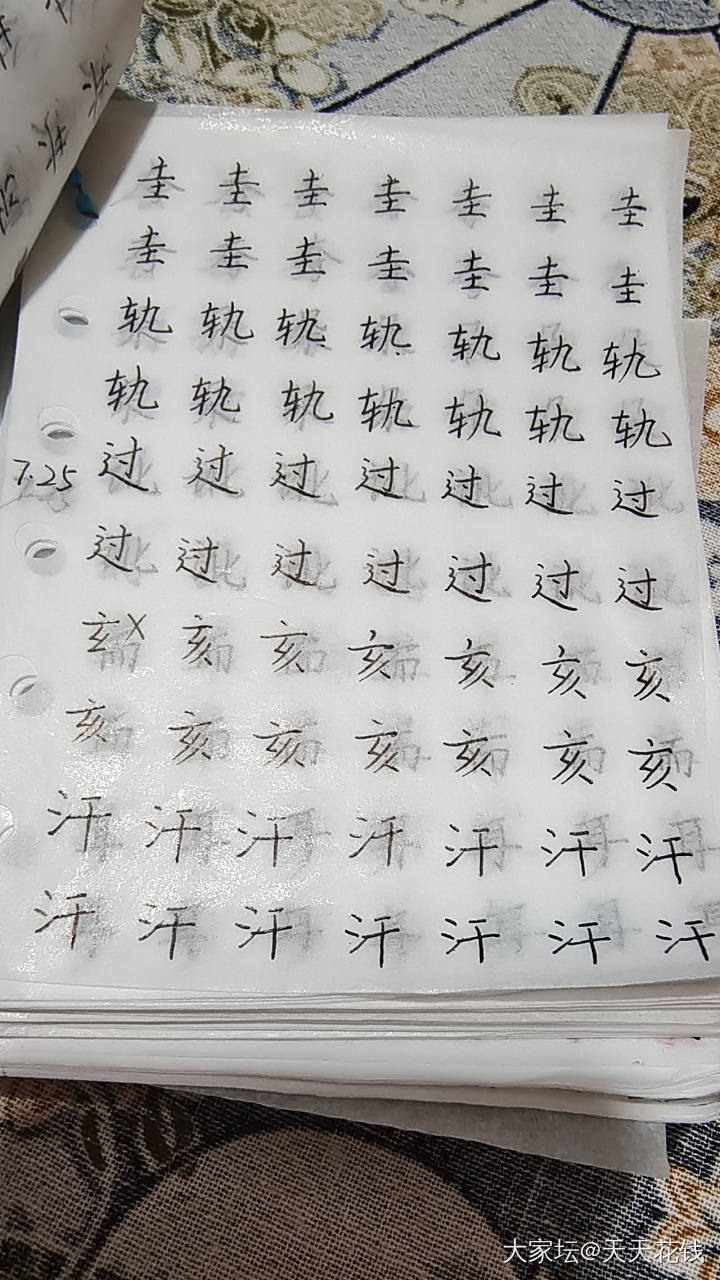 圭 圭 圭 圭 圭 圭 圭
圭 圭 圭 圭 圭 圭 圭
轨 轨 轨 轨 轨 轨 轨
轨 轨 轨 轨 轨 轨 轨
7.25 过 过 过 过 过 过 过
过 过 过 过 过 过 过
玄 X 亥 亥 亥 亥 亥 亥
亥 亥 亥 亥 亥 亥 亥
汗 汗 汗 汗 汗 汗 汗
汗 汗 汗 汗 汗 汗 汗
大家坛@天天花钱